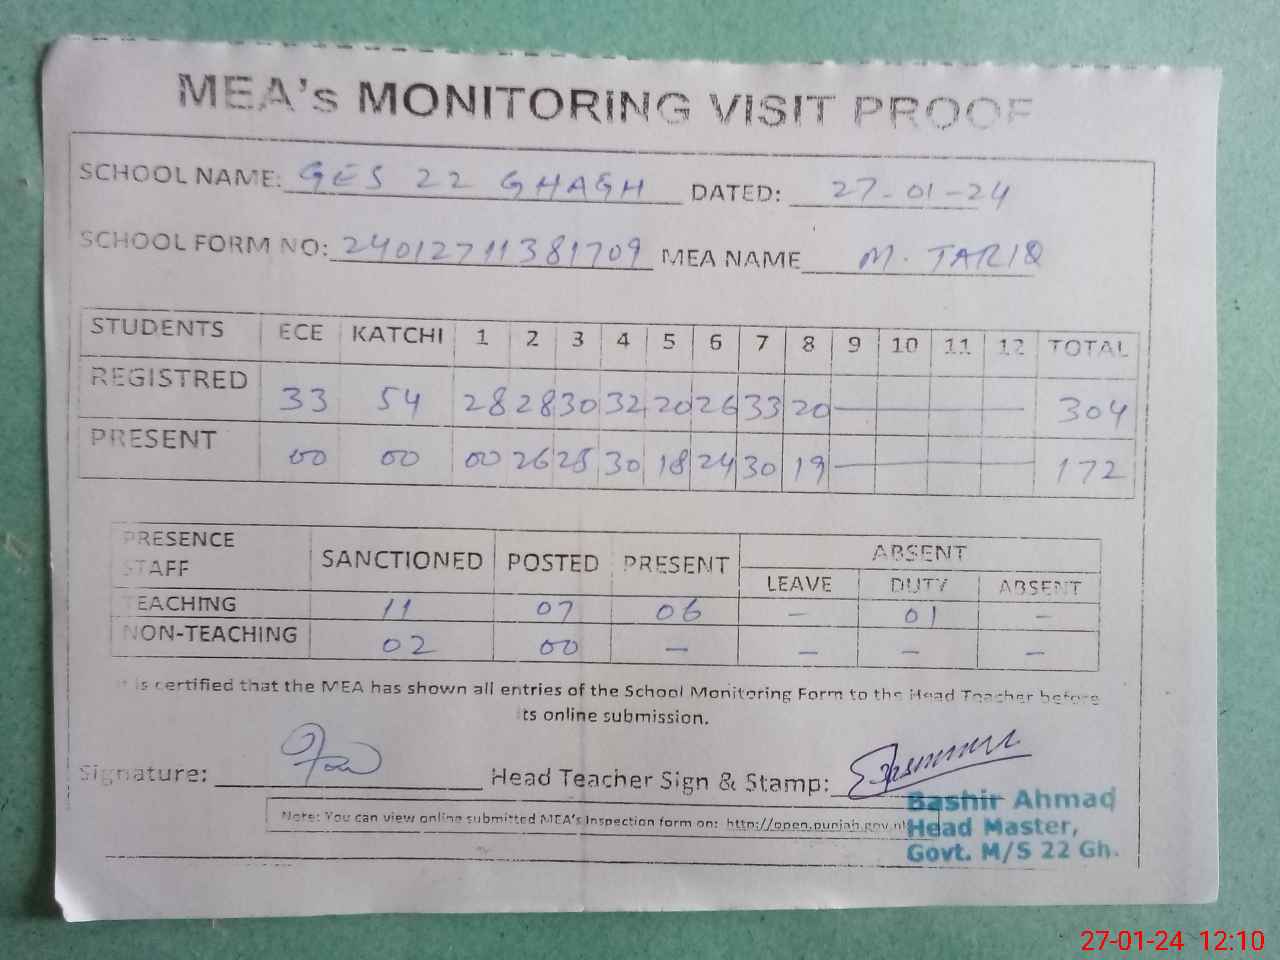 MEA's MONITORING VISIT PROOF
SCHOOL NAME: GES 22 GHAGH DATED: 27-01-24
SCHOOL FORM NO: 24012711381709 MEA NAME M. TARIQ
STUDENTS ECE KATCHI 1 2 3 4 5 6 7 8 9 10 11 12 TOTAL
REGISTRED 33 54 28 28 30 32 20 26 33 20 304
PRESENT 00 00 00 26 25 30 18 24 30 19 172
PRESENCE STAFF SANCTIONED POSTED PRESENT ABSENT
LEAVE DUTY ABSENT
TEACHING 11 07 06 - 01 -
NON-TEACHING 02 00 - - - -
It is certified that the MEA has shown all entries of the School Monitoring Form to the Head Teacher before
its online submission.
Signature: Head Teacher Sign & Stamp:
Bashir Ahmad
Note: You can view online submitted MEA's Inspection form on: http://open.punjab.gov.
Head Master,
Govt. M/S 22 Gh.
27-01-24 12:10